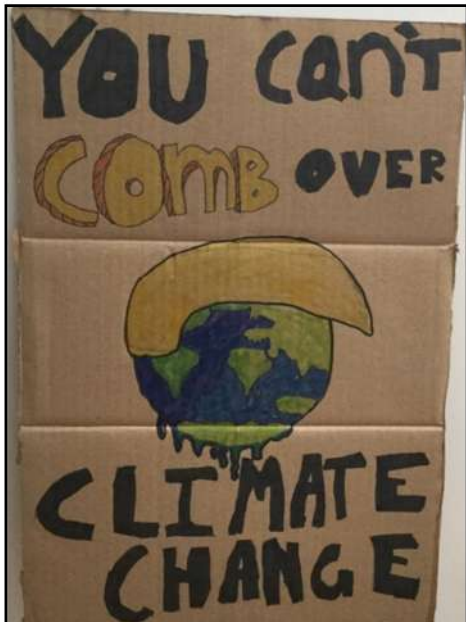 You can't
COMB OVER
CLIMATE
CHANGE